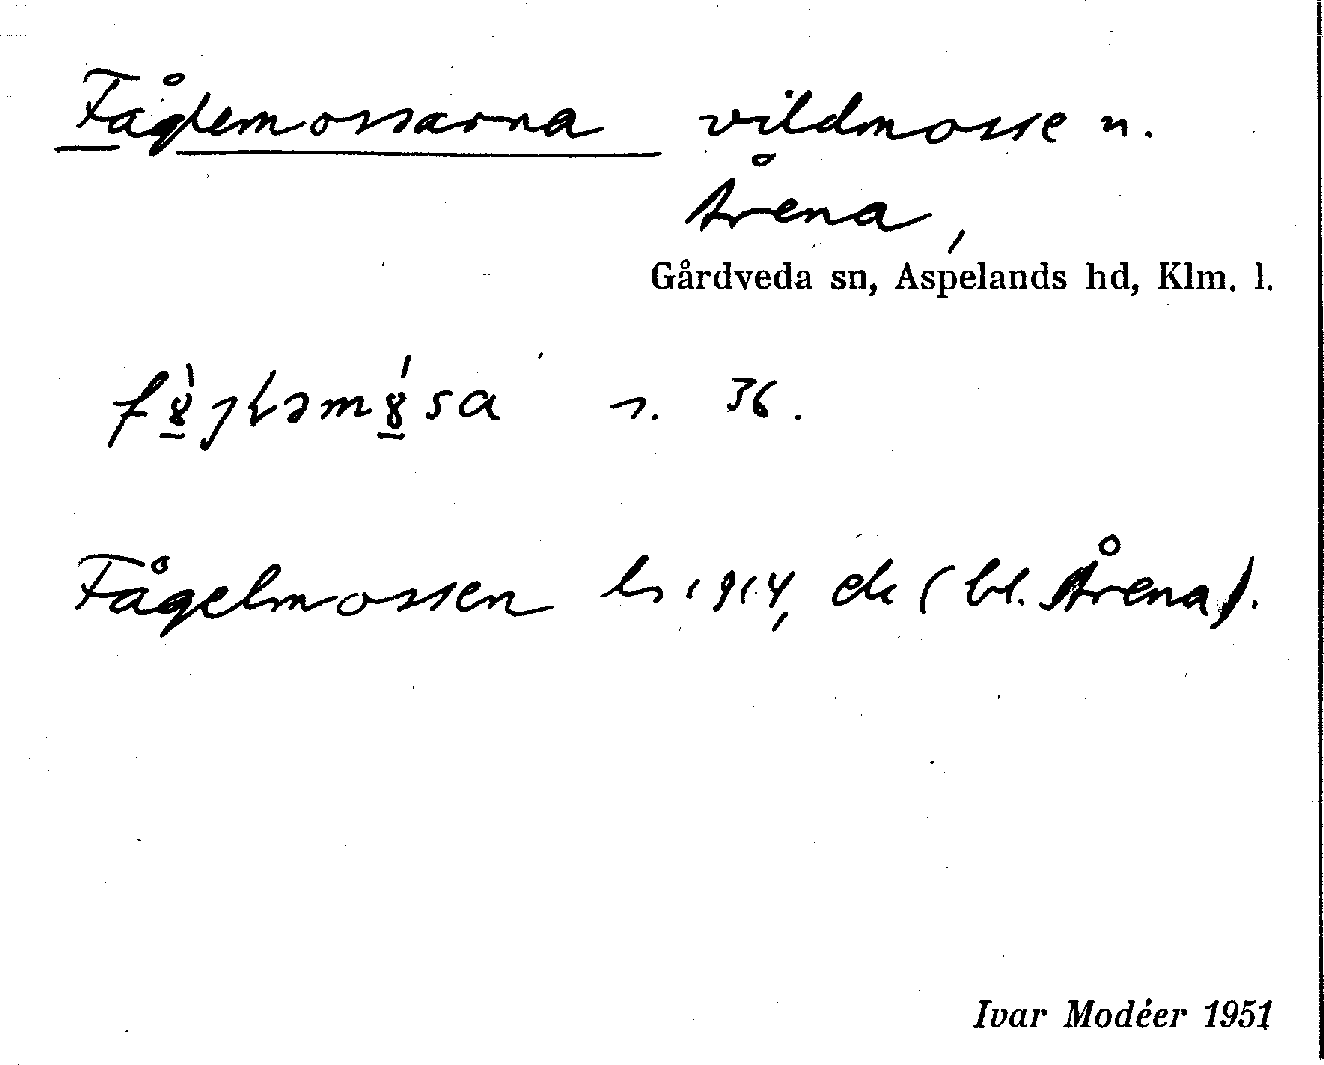 Fåglemossarna vildmosse n.
Årena,
Gårdveda sn, Aspelands hd, Klm. l.
36.
Fågelmossen ls 1914, ek (bl. Årena).
Ivar Modéer 1951